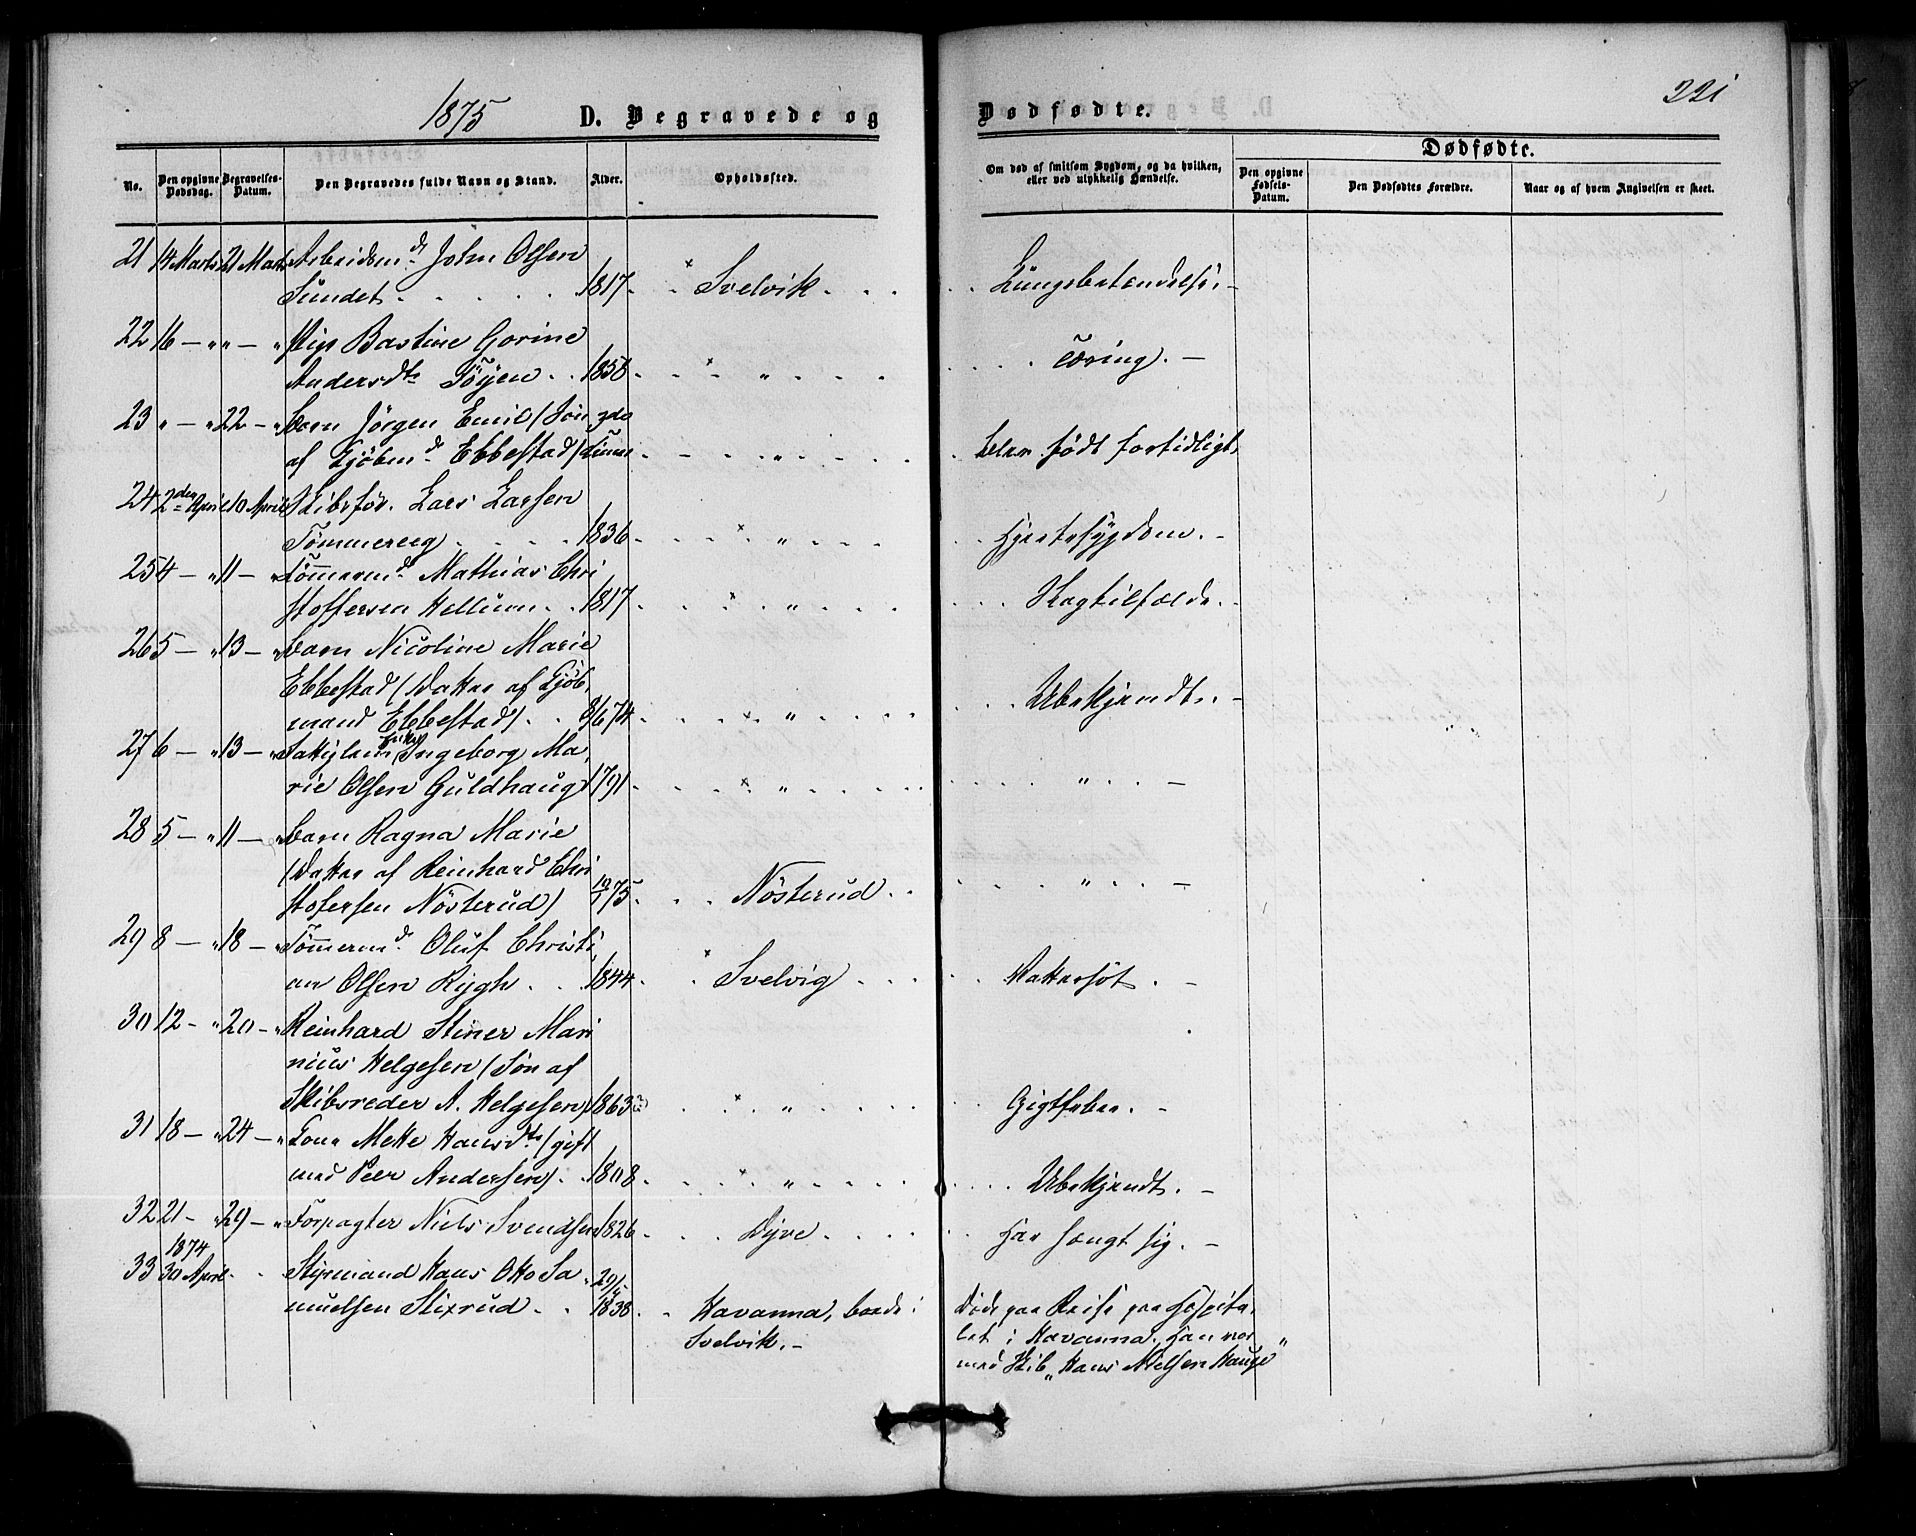 1875 D. Begravede og Dødfødte. 221
No. Den opgivne Dødsdag. Begravelses-Datum. Den Begravedes fulde Navn og Stand. Alder. Opholdssted. Om død af smitsom Sygdom, og da hvilken, eller ved ulykkelig Hændelse. Dødfødte.
Den opgivne Fødsels-Datum. Den Dødfødtes Forældre. Naar og af hvem Angivelsen er skeet.
21 14 Marts 21 Marts Arbeidsmd. John Olsen
Sundet 1817 Svelvik Lungebetændelse
22 16 — " " — " Pige Bastine Gorine
Andersdtr Töyen 1858 " Tæring. —
23 " — " 22 — " Barn Jörgen Emil (Sön
af Kjöbmd. Ebbestad) " blev födt fortidligt
24 2den April 10 April Skibsför. Lars Larsen
Tömmeraas 1836 " Hjertesygdom. —
25 4 — " 11 — " Tömmermd. Mathias Chri
stoffersen Hellum 1817 " Slagtilfælde. —
26 5 — " 13 — " Barn Nicoline Marie
Ebbestad (Datter af Kjöb
mand Ebbestad) 8/6 74 " Ubekjendt. —
27 6 — " 13 — " Fattiglem Enke Ingeborg Ma
rie Olsen Guldhaug 1791 " " —
28 5 — " 11 — " Barn Ragna Marie
(Datter af Reinhard Chri
stofersen Nösterud) 19/1 75 Nösterud " —
29 8 — " 18 — " Tömmermd. Oluf Christi
an Olsen Rygh 1844 Svelvig Vattersot. —
30 12 — " 20 — " Reinhard Stener Mari
nius Helgesen (Sön af
Skibsreder A. Helgesen) 1863 " Gigtfeber. —
31 18 — " 24 — " Kone Mette Hansdtr (gift
med Peer Andersen) 1808 " Ubekjendt. —
32 21 — " 29 — " Forpagter Niels Svendsen 1826 Dyve Har hængt sig. —
33 1874 30 April Styrmand Hans Otto Sa
muelsen Stixrud 29/4 1838 Havanna, boede i
Svelvik. — Döde paa Reise paa Hospita
let i Havanna. Han var
med Skib „Hans Nielsen Hauge"